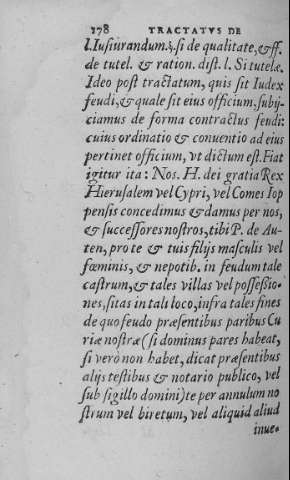 178 TRACTATVS DE
l. Iusiurandum. §. si de qualitate, & ff.
de tutel. & ration. dist. l. Si tutelæ.
Ideo post tractatum, quis sit Iudex
feudi, & quale sit eius officium, subij-
ciamus de forma contractus feudi:
cuius ordinatio & conuentio ad eius
pertinet officium, vt dictum est. Fiat
igitur ita: Nos. H. dei gratia Rex
Hierusalem vel Cypri, vel Comes Iop
pensis concedimus & damus per nos,
& successores nostros, tibi P. de Au-
ten, pro te & tuis filijs masculis vel
fœminis, & nepotib. in feudum tale
castrum, & tales villas vel possessio-
nes, sitas in tali loco, infra tales fines
de quo feudo præsentibus paribus Cu
riæ nostræ (si dominus pares habeat,
si vero non habet, dicat præsentibus
alijs testibus & notario publico, vel
sub sigillo domini) te per annulum no
strum vel biretum, vel aliquid aliud
inue-